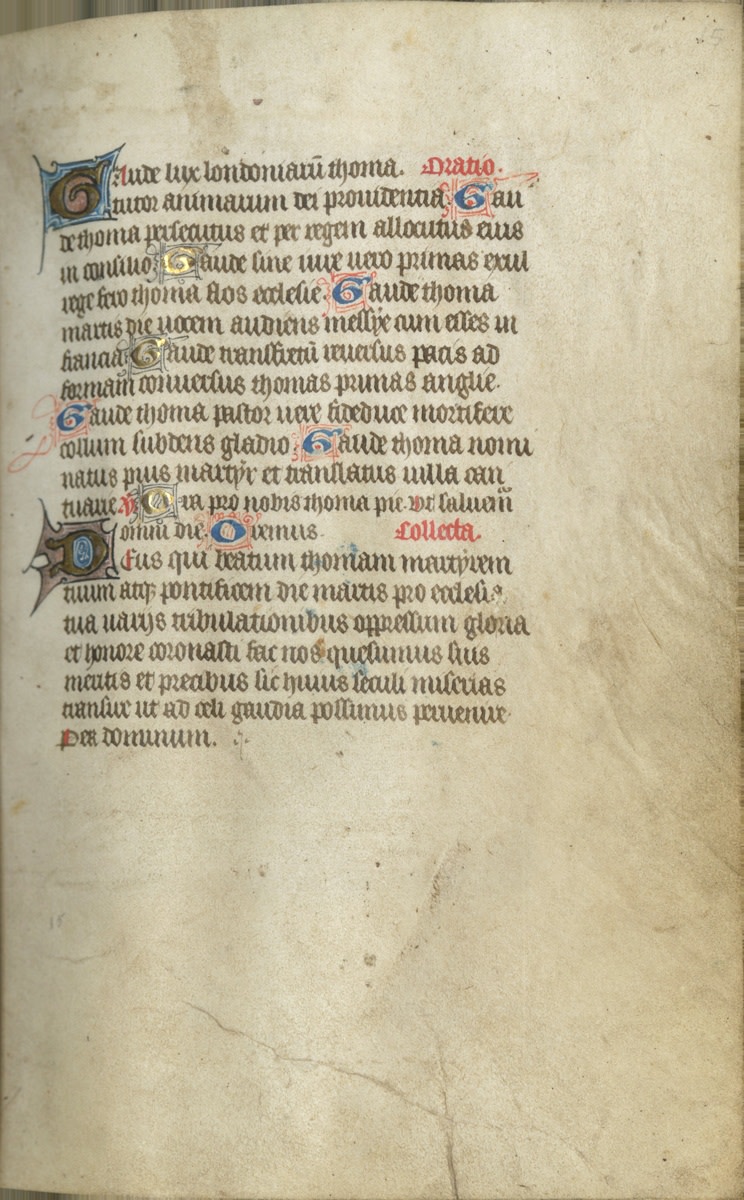 GAude lux londoniarū thoma. Oratio.
tutor animarum dei prouidentia Gau
de thoma persecutus et per regem allocutus eius
in consilio. Gaude sine iure uero primas exul
rege fero thoma flos ecclesie. Gaude thoma
martis die uocem audiens messye cum esses in
francia Gaude transfretū reuersus pacis ad
formam conuersus thomas primas anglie.
Gaude thoma pastor uere fideduce mortifere
collum subdens gladio. Gaude thoma nomi
natus pius martyr et translatus uilla can
tuarie. V. Ora pro nobis thoma pie. Vt saluem̄
omni die. Oremus. Collecta.
DEus qui beatum thomam martyrem
tuum atq; pontificem die martis pro ecclesia
tua uariis tribulationibus oppressum gloria
et honore coronasti fac nos quesumus suis
meritis et precibus sic huius seculi miserias
transire ut ad celi gaudia possimus peruenire.
Per dominum.